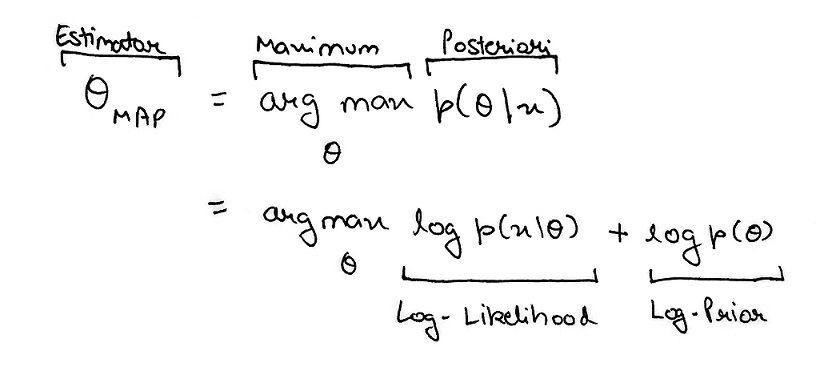 Estimator Maximum Posteriori
θ_MAP = arg max p(θ|x)
θ
= arg max log p(x|θ) + log p(θ)
θ
Log-Likelihood Log-Prior